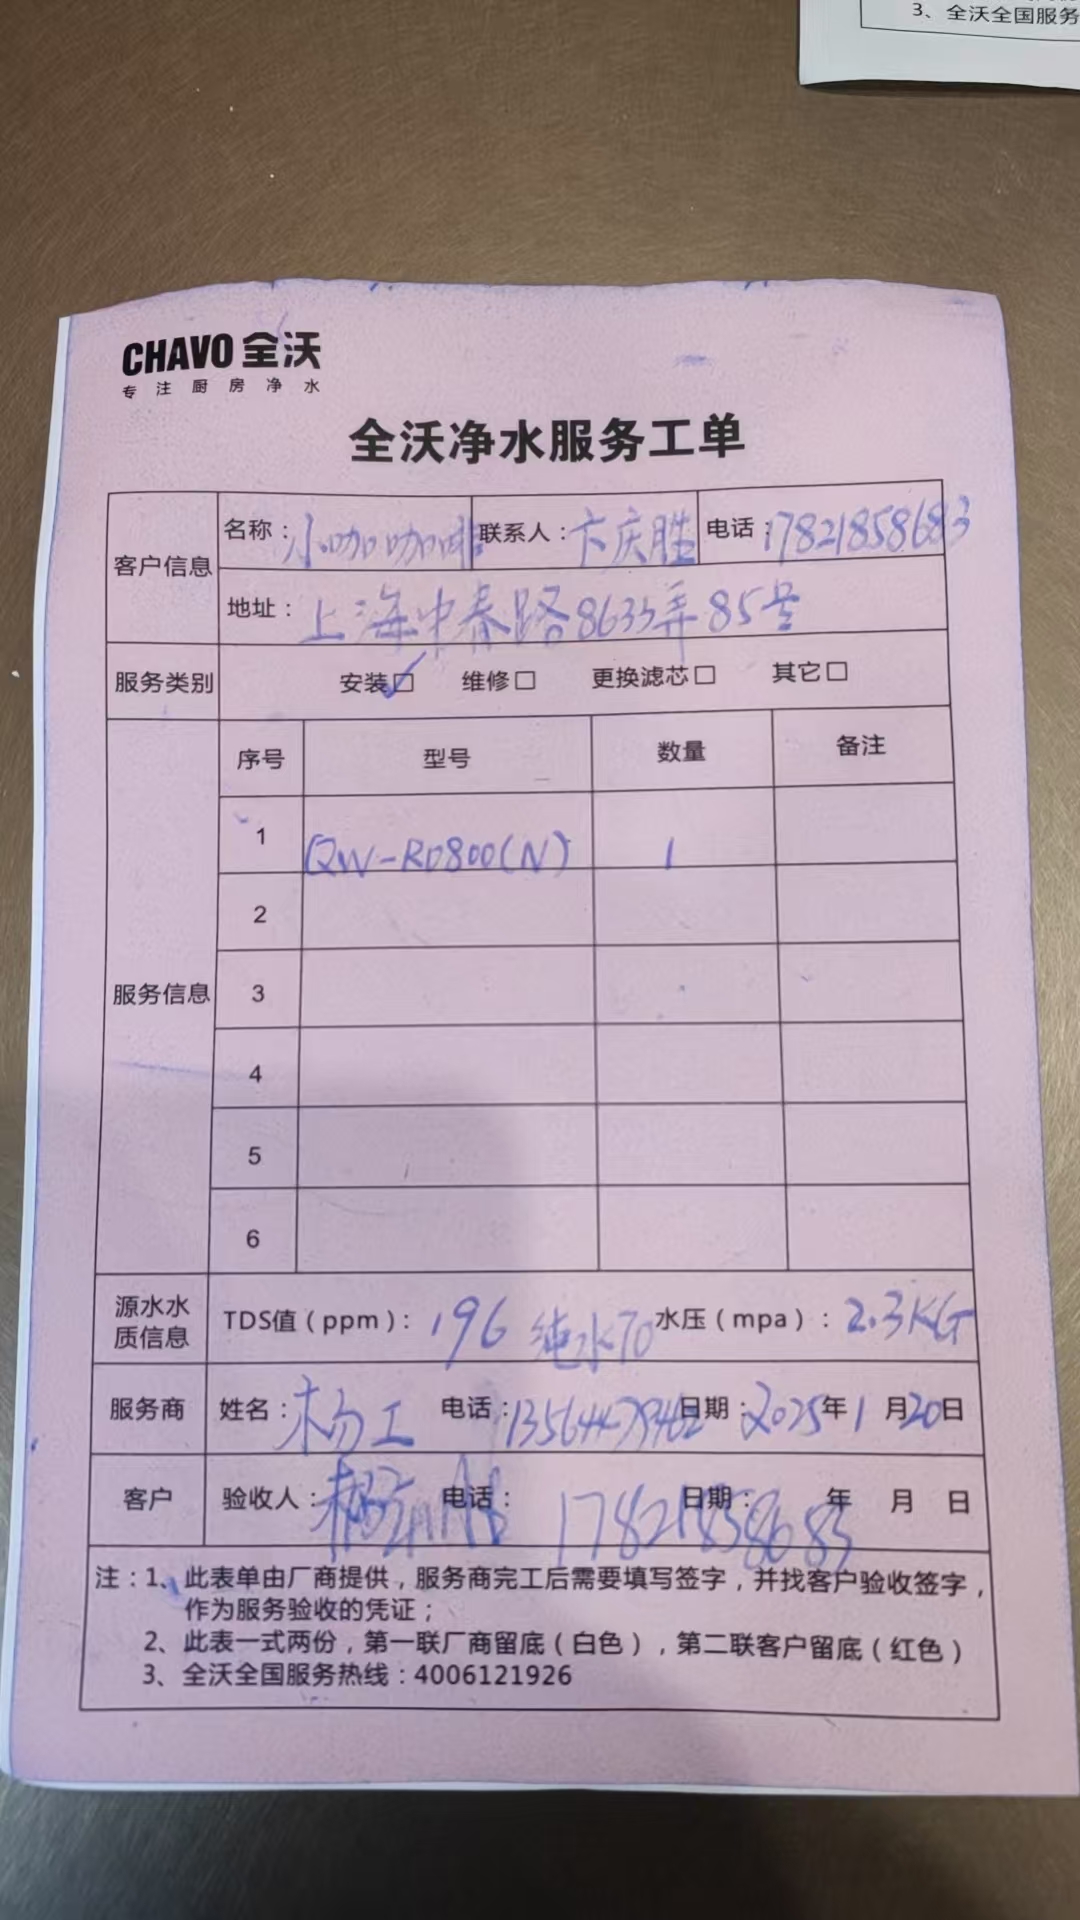 3、全沃全国服务
CHAVO 全沃
专注厨房净水
全沃净水服务工单
客户信息 名称：小咖咖啡 联系人：卞庆胜 电话：17821858683
地址：上海中春路8633弄85号
服务类别 安装☑ 维修□ 更换滤芯□ 其它□
服务信息 序号 型号 数量 备注
1 QW-RO800(N) 1
2
3
4
5
6
源水水质信息 TDS值（ppm）：196 纯水70 水压（mpa）：2.3KG
服务商 姓名：杨工 电话： 日期：2025年1月20日
客户 验收人： 电话：17821858683 日期： 年 月 日
注：1、此表单由厂商提供，服务商完工后需要填写签字，并找客户验收签字，
作为服务验收的凭证；
2、此表一式两份，第一联厂商留底（白色），第二联客户留底（红色）
3、全沃全国服务热线：4006121926